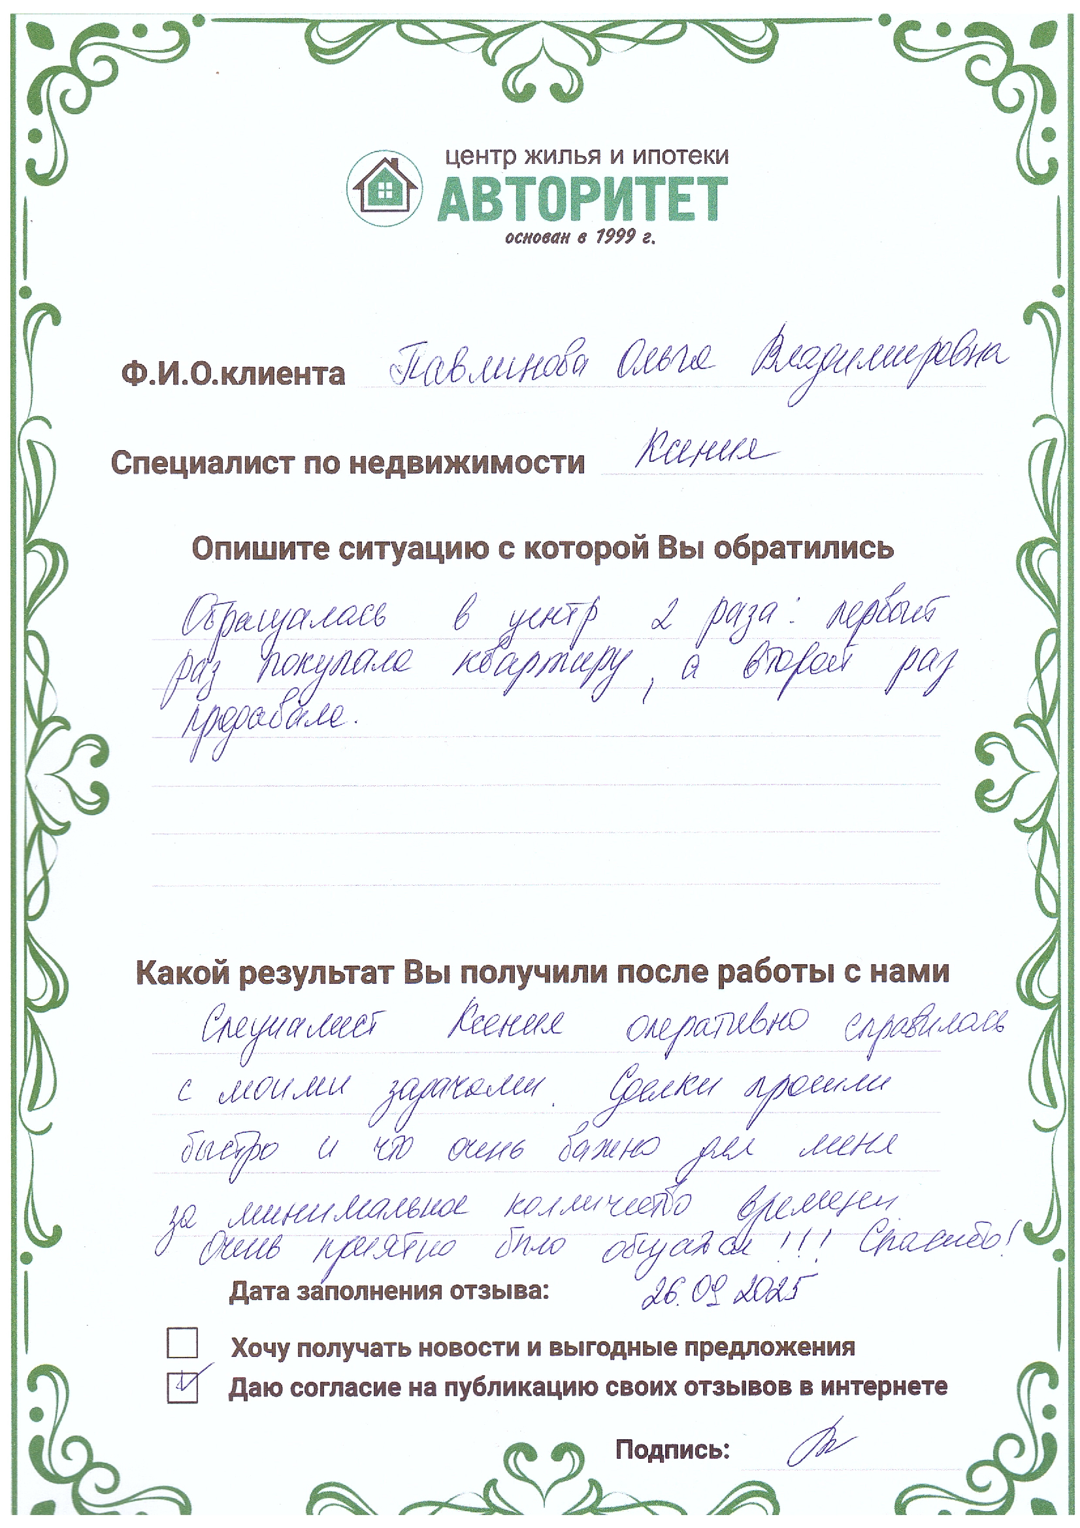 центр жилья и ипотеки
АВТОРИТЕТ
основан в 1999 г.
Ф.И.О.клиента Павлинова Ольга Владимировна
Специалист по недвижимости Ксения
Опишите ситуацию с которой Вы обратились
Обращалась в центр 2 раза: первый
раз покупала квартиру, а второй раз
продавала.
Какой результат Вы получили после работы с нами
Специалист Ксения оперативно справилась
с моими задачами. Сделки прошли
быстро и что очень важно для меня
за минимальное колличество времени
Очень приятно было общаться!!! Спасибо!
Дата заполнения отзыва: 26.09.2025
Хочу получать новости и выгодные предложения
Даю согласие на публикацию своих отзывов в интернете
Подпись: